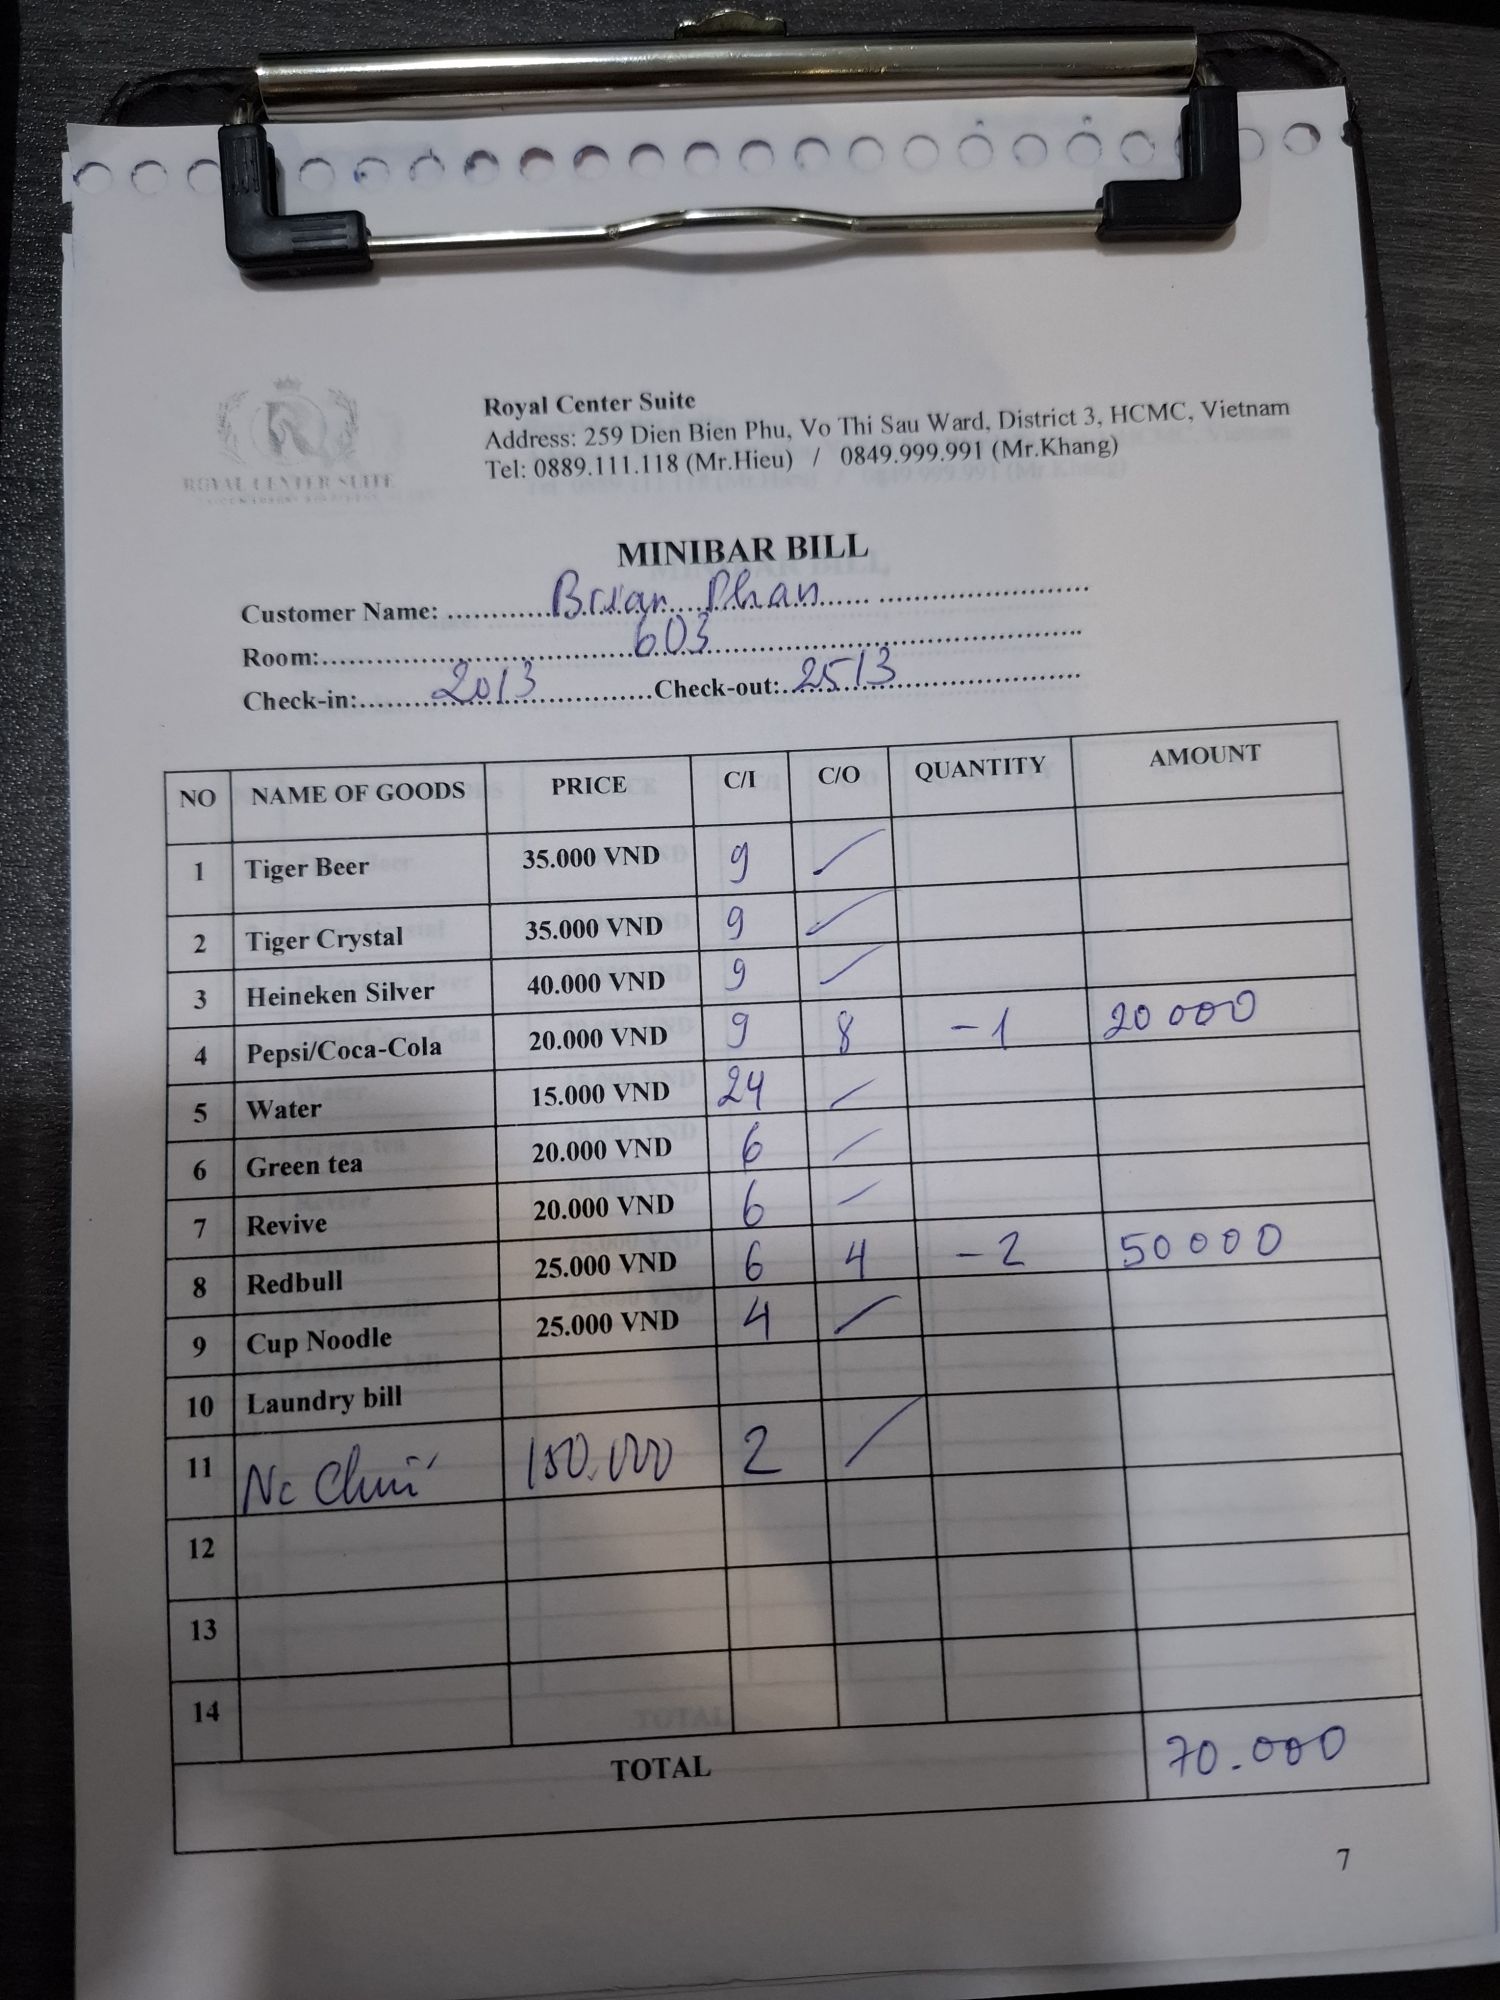 ROYAL CENTER SUITE
Royal Center Suite
Address: 259 Dien Bien Phu, Vo Thi Sau Ward, District 3, HCMC, Vietnam
Tel: 0889.111.118 (Mr.Hieu) / 0849.999.991 (Mr.Khang)
MINIBAR BILL
Customer Name: Brian Phan
Room: 603
Check-in: 20/3 Check-out: 25/3
NO NAME OF GOODS PRICE C/I C/O QUANTITY AMOUNT
1 Tiger Beer 35.000 VND 9 ✓
2 Tiger Crystal 35.000 VND 9 ✓
3 Heineken Silver 40.000 VND 9 ✓
4 Pepsi/Coca-Cola 20.000 VND 9 8 -1 20 000
5 Water 15.000 VND 24 –
6 Green tea 20.000 VND 6 –
7 Revive 20.000 VND 6 –
8 Redbull 25.000 VND 6 4 -2 50 000
9 Cup Noodle 25.000 VND 4 –
10 Laundry bill
11 Nc 2 /
12
13
14
TOTAL 70.000
7